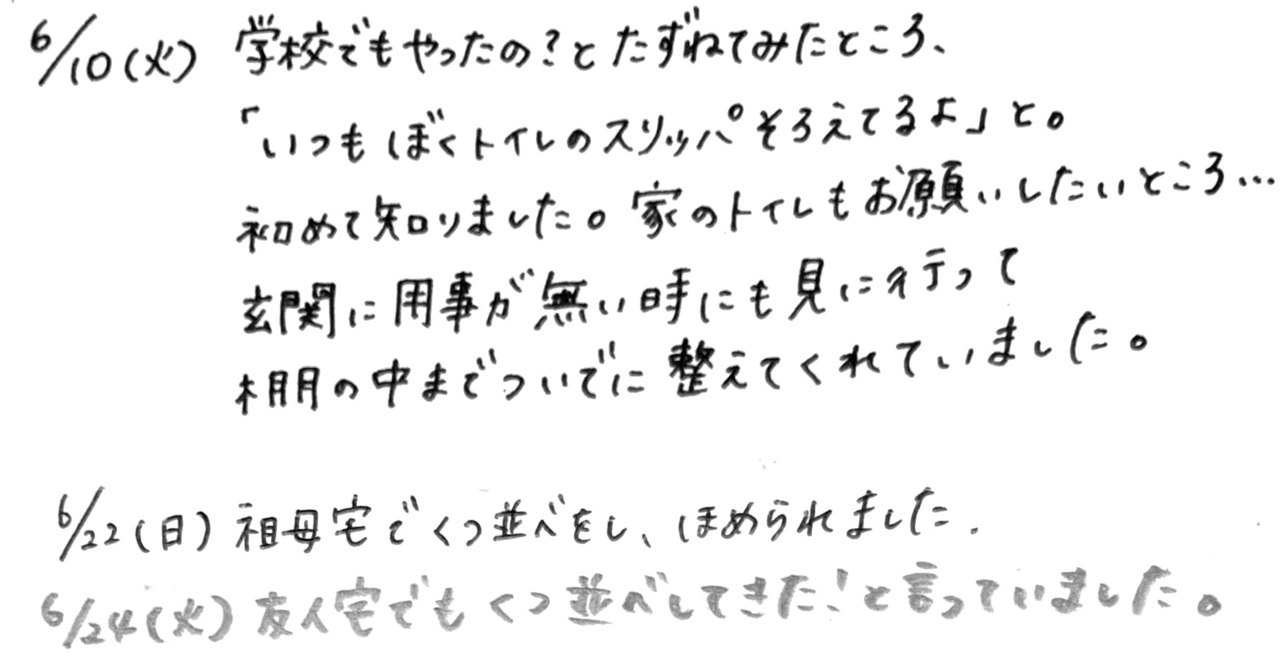 6/10(火) 学校でもやったの?とたずねてみたところ、
「いつもぼくトイレのスリッパそろえてるよ」と。
初めて知りました。家のトイレもお願いしたいところ…
玄関に用事が無い時にも見に行って
棚の中までついでに整えてくれていました。
6/22(日) 祖母宅でくつ並べをし、ほめられました.
6/24(火) 友人宅でもくつ並べしてきた!と言っていました。